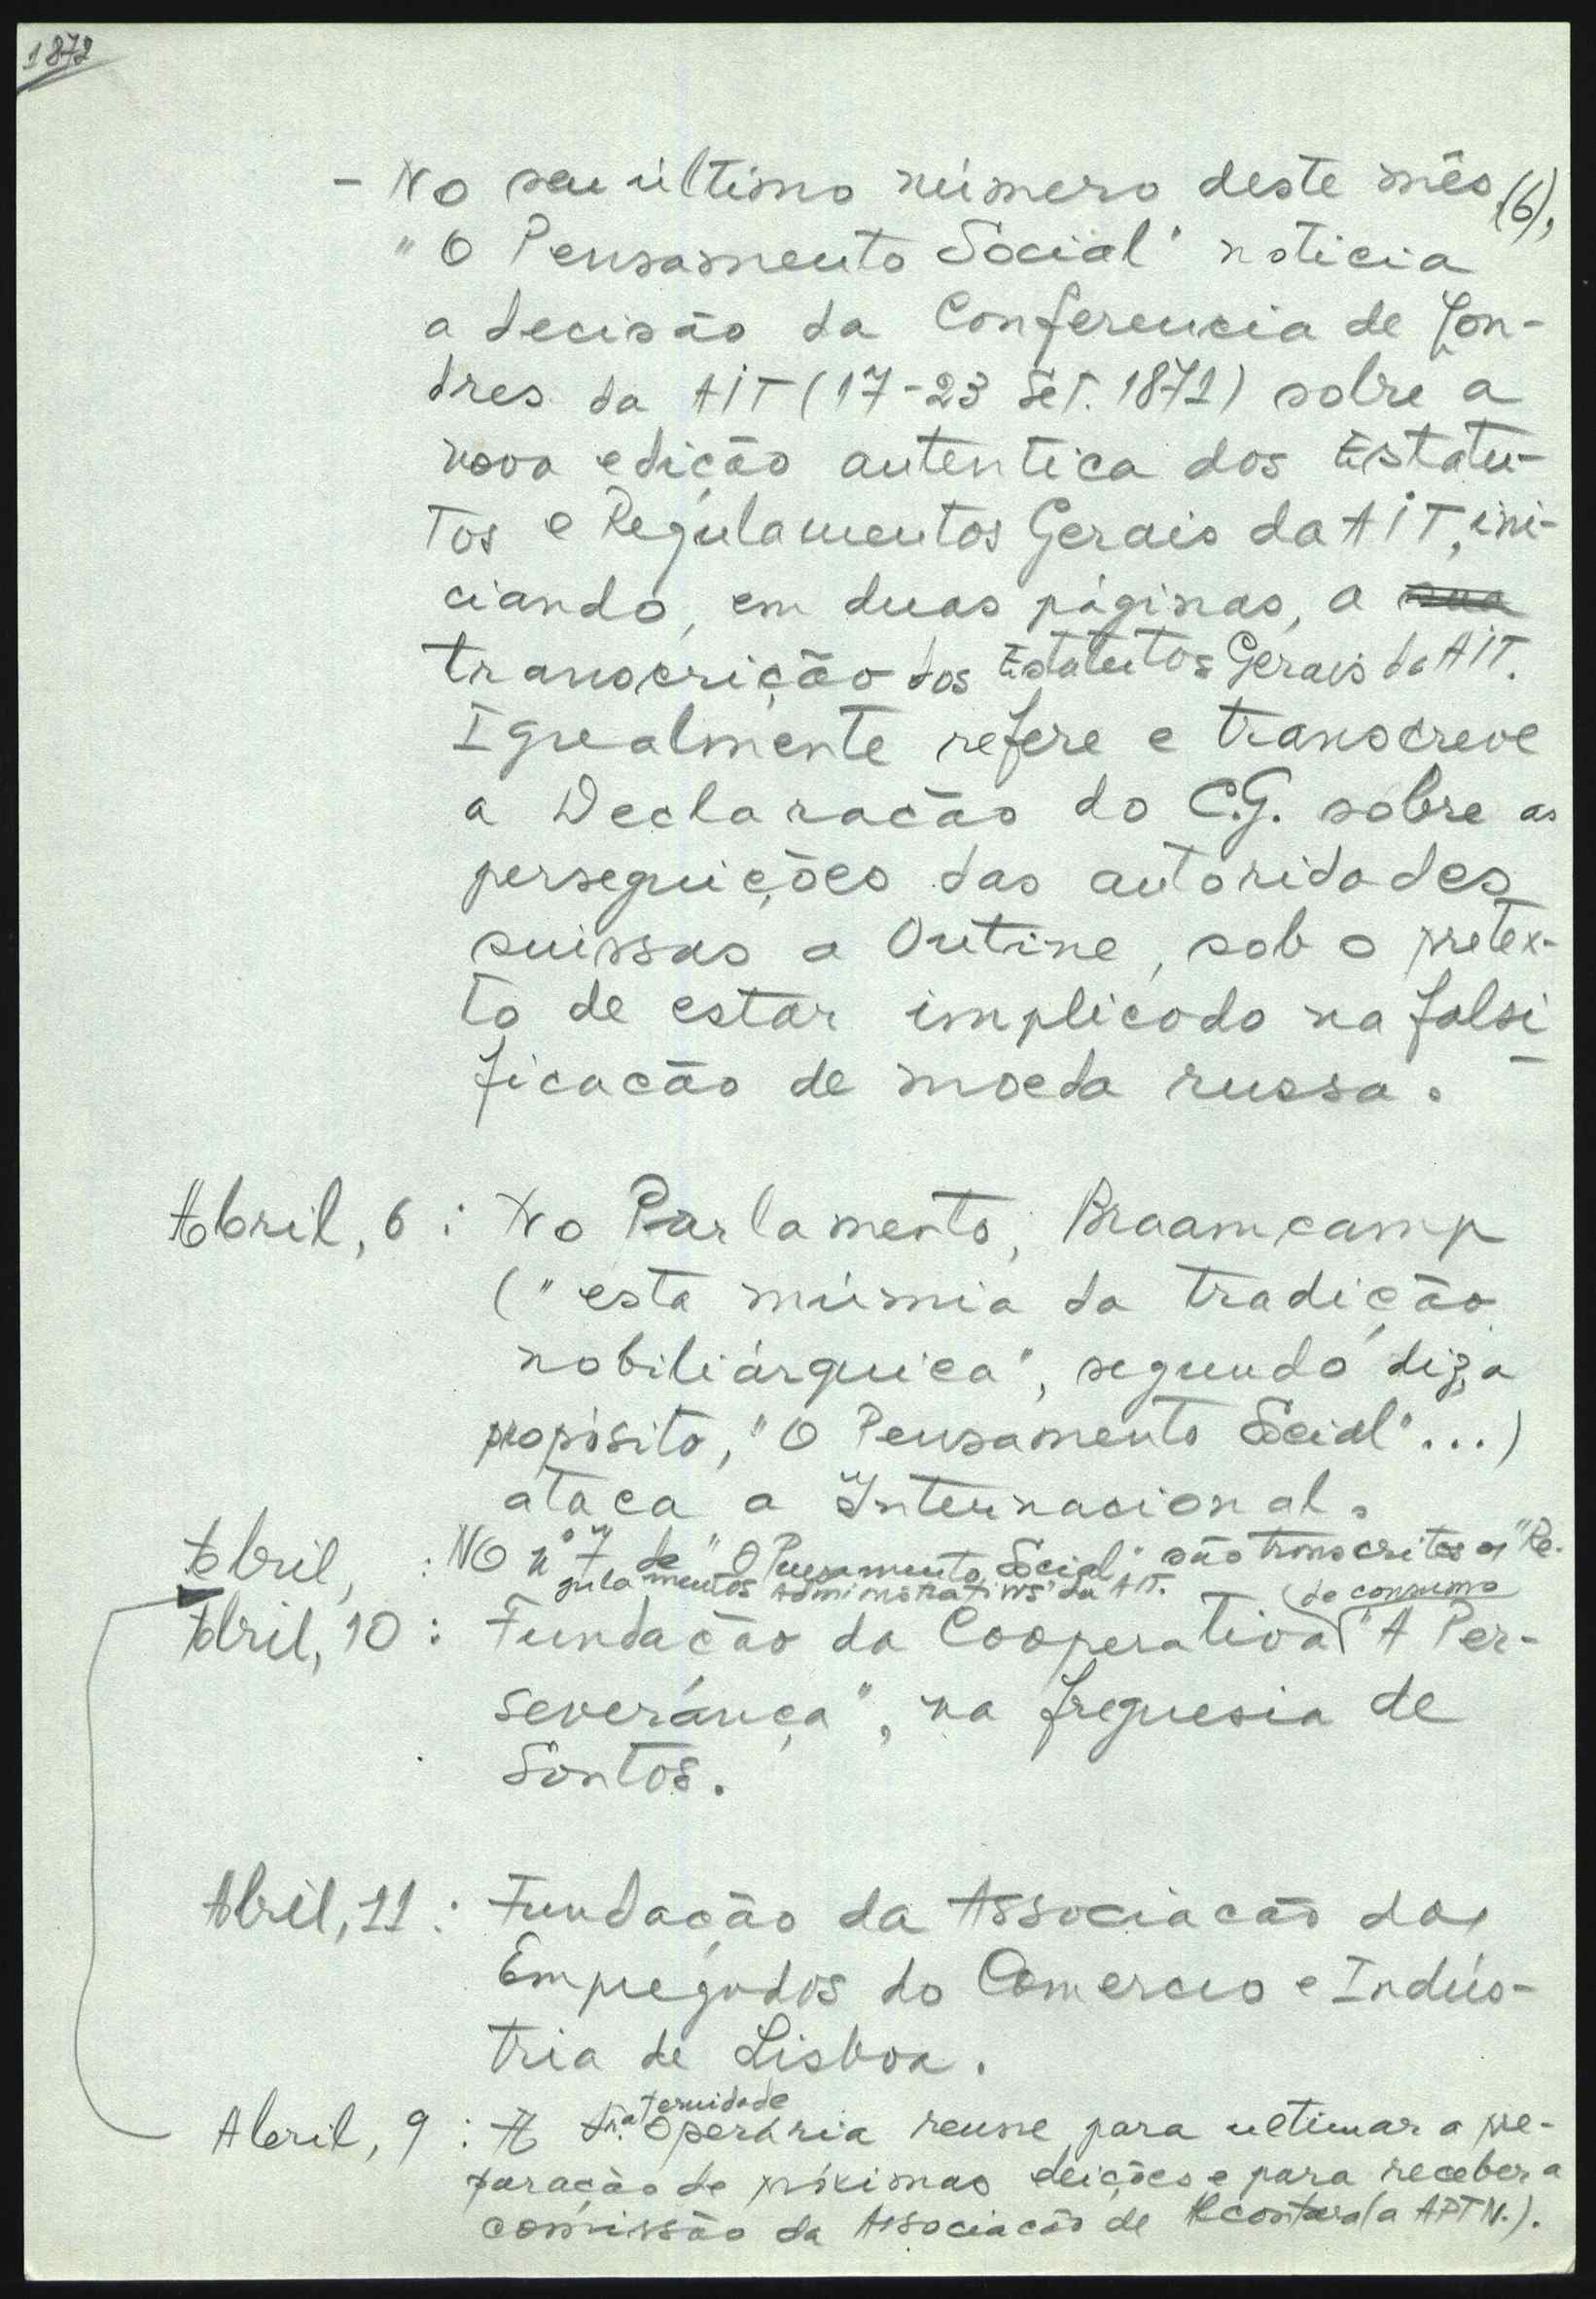 1872
- No seu último número deste mês (6),
"O Pensamento Social" noticia
a decisão da Conferencia de Lon-
dres da AIT (17-23 Set. 1871) sobre a
nova edição autentica dos Estatu-
tos e Regulamentos Gerais da AIT, ini-
ciando, em duas páginas, a sua
transcrição dos Estatutos Gerais da AIT.
Igualmente refere e transcreve
a Declaração do C.G. sobre as
perseguições das autoridades
suissas a Outine, sob o pretex-
to de estar implicado na falsi-
ficação de moeda russa.
Abril, 6 : No Parlamento, Braamcamp
("esta múmia da tradição
nobiliárquica", segundo diz, a
propósito, "O Pensamento Social"...)
ataca a Internacional.
Abril, : No nº 7 de "O Pensamento Social" são transcritos os "Re-
gulamentos Administrativos" da AIT.
Abril, 10 : Fundação da Cooperativa (de consumo) "A Per-
severança", na freguesia de
Santos.
Abril, 11 : Fundação da Associação dos
Empregados do Comercio e Indús-
tria de Lisboa.
Abril, 9 : A Fraternidade Operária reune para ultimar a pre-
paração de próximas eleições e para receber a
comissão da Associação de (a APTN.).